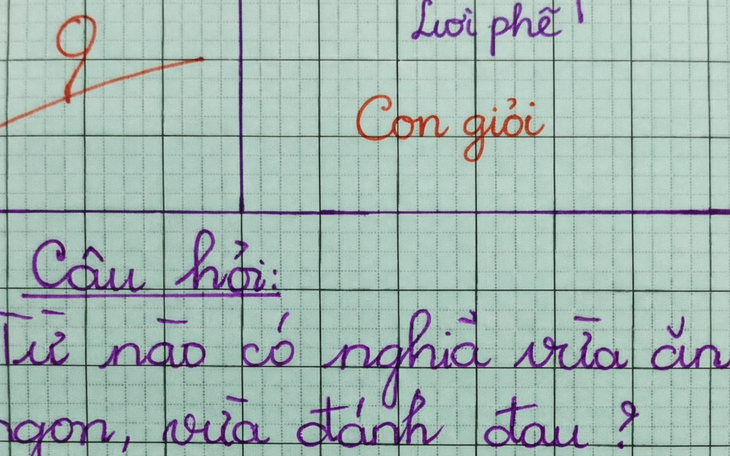 Lời phê!
9
Con giỏi
Câu hỏi:
Từ nào có nghĩa vừa ăn
ngon, vừa đánh đau?